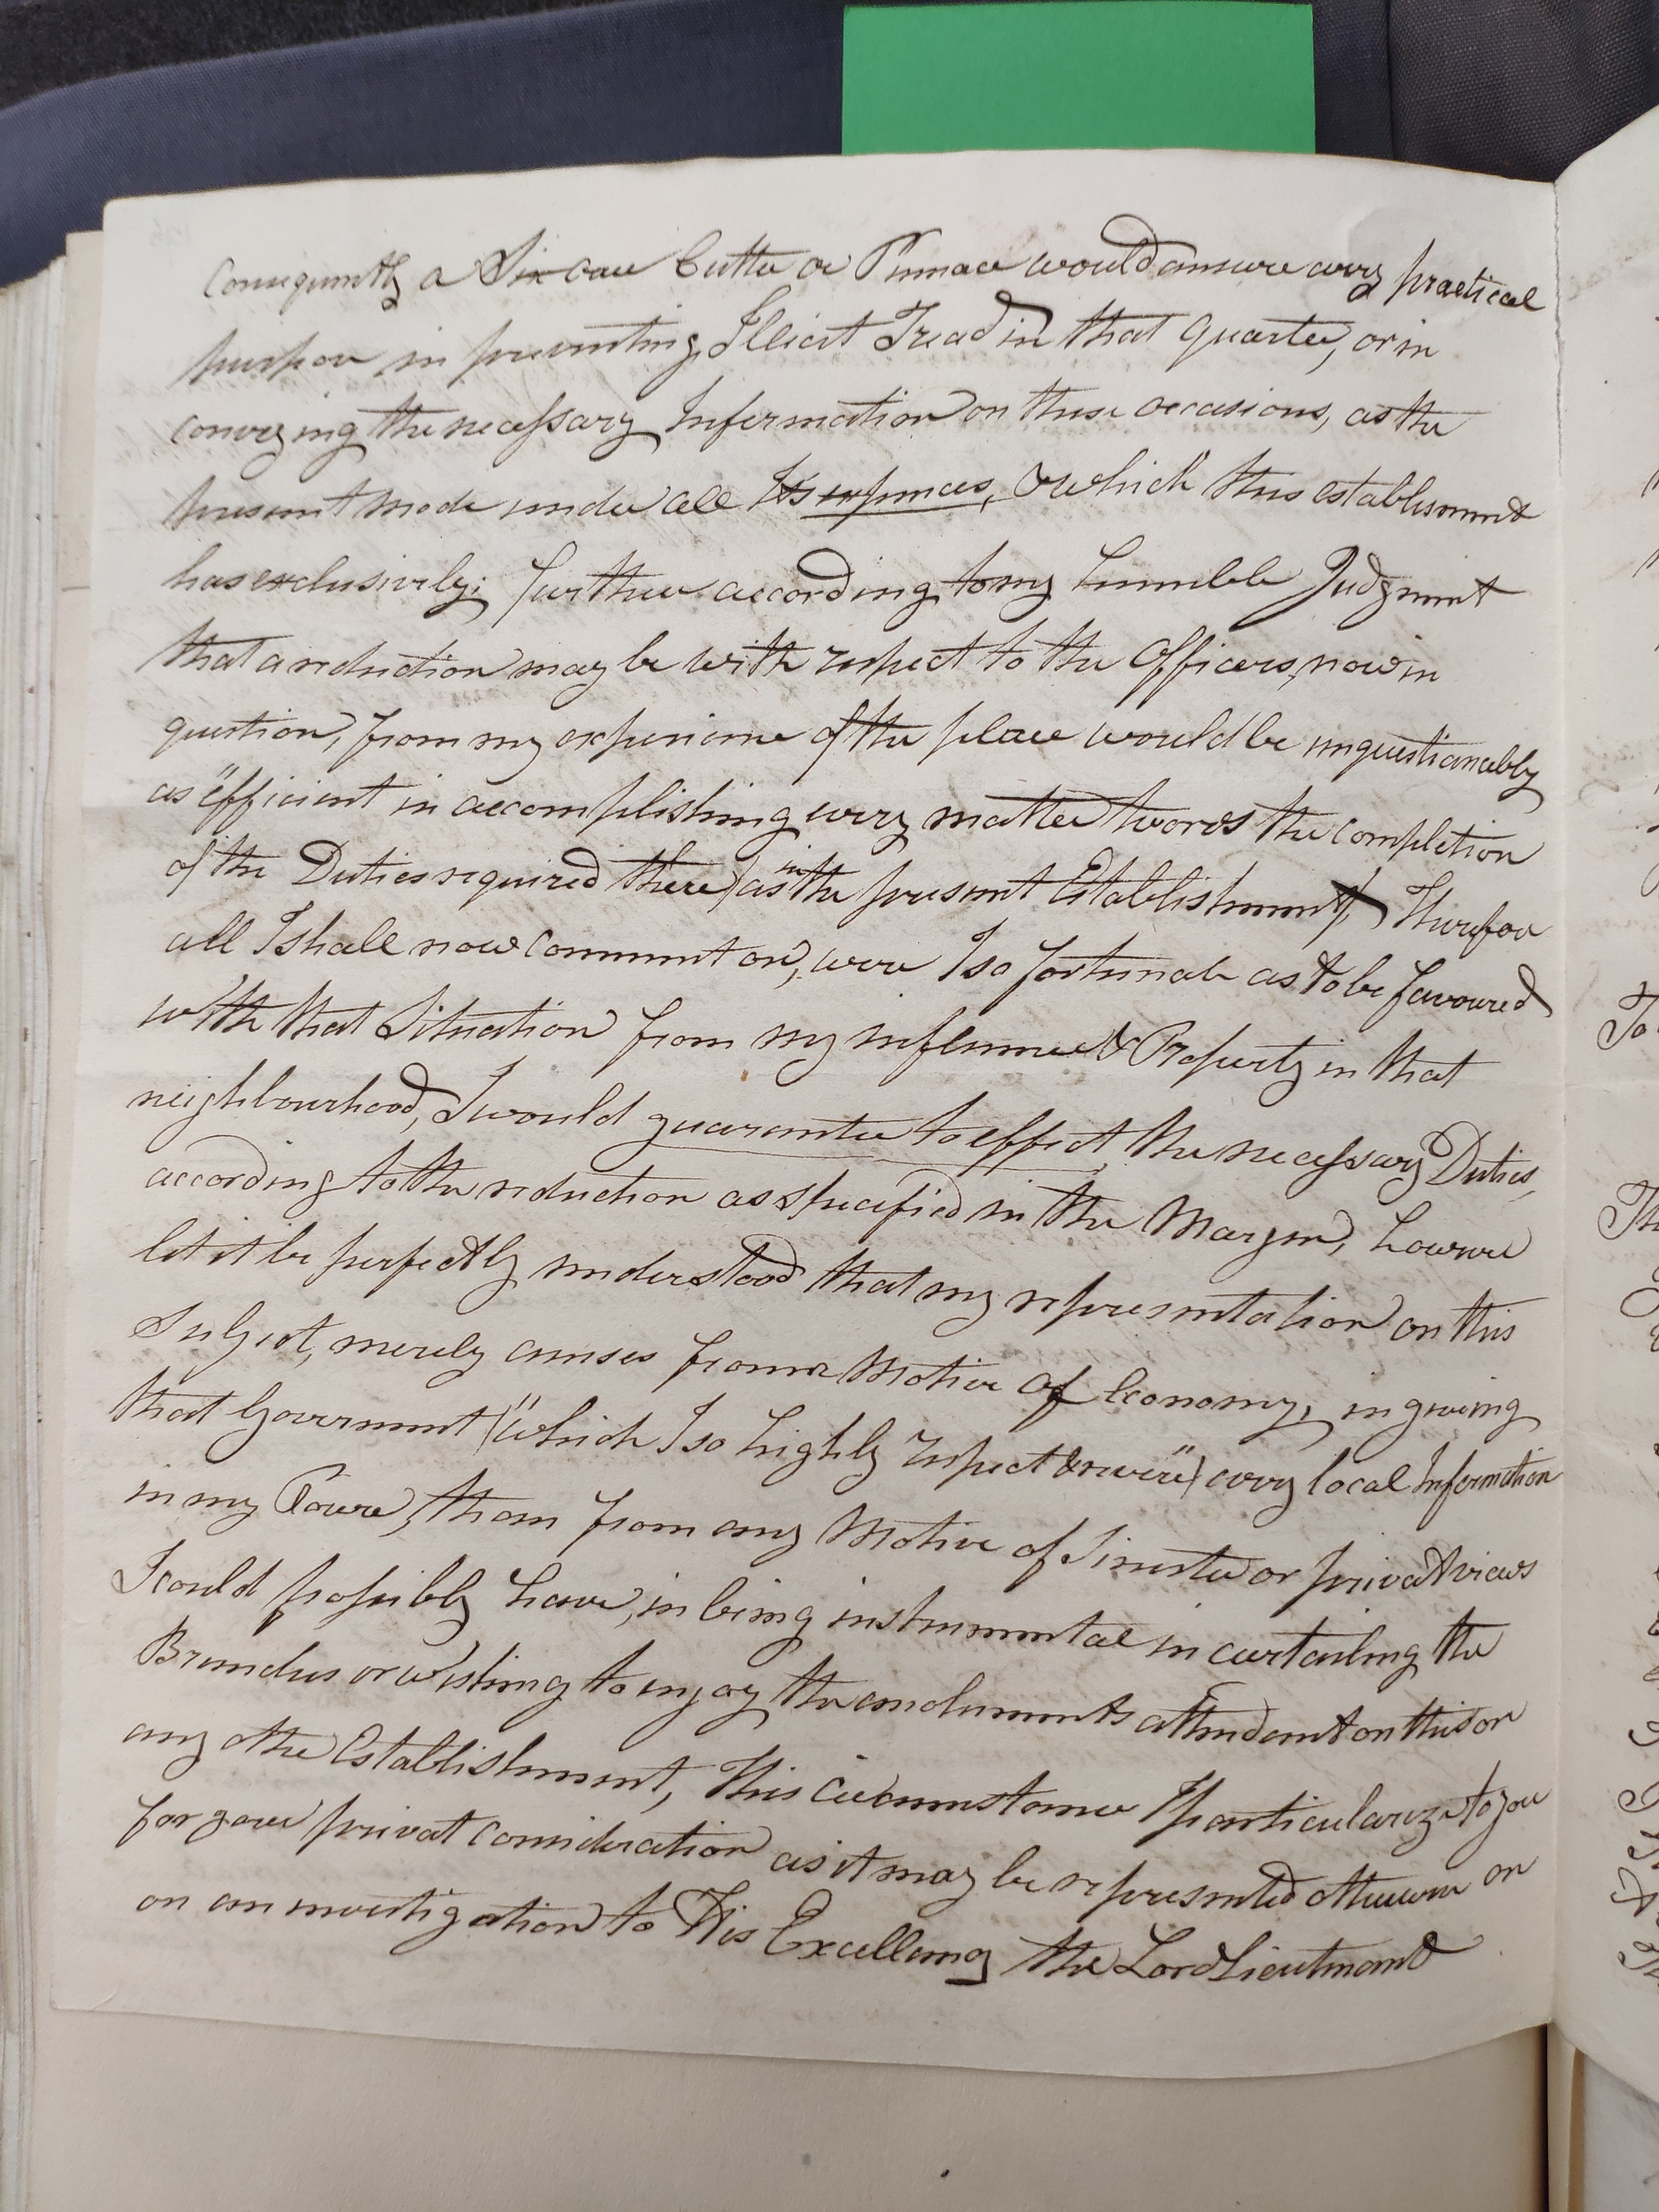 Consequently a Six oar Cutter or Pinnace would answer every practical
purpose in preventing Illicit Tread in that quarter, or in
conveying the necessary Information on these occasions, as the
present mode under all Its expences, which this establisment
has exclusively; further according to my humble Judgment
that a reduction may be with respect to the Officers, now in
question, from my experience of the place would be unquestionably
as "efficient in accomplishing every matter towards the completion
of the Duties required there) as in the present Establishment, Therefore
all I shall now comment on, were I so fortunate as to be favoured
with that Situation from my influence & Property in that
neighbourhood, I would guarantee to effect the necessary Duties,
according to the reduction as specified in the Margin, however
let it be perfectly understood that my representation on this
Subject, merely arises from a Motive of Economy, in giving
that Government ("which I so highly respect & revere") every local Information
in my Power, than from any Motive of Sinester or privat views
I could possibly have, in being instrumental in curtailing the
or wishing to enjoy the emoluments attendant on this or
any other Establishment, This circumstance I particularize to you
for your privat consideration as it may be represented otherwise or
on an investigation to His Excellency the Lord Lieutenant